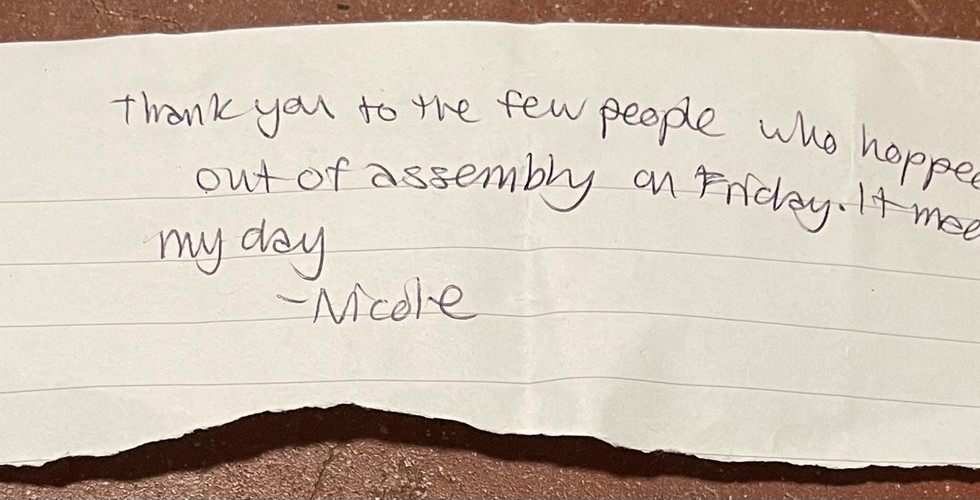 Thank you to the few people who hopped
out of assembly on Friday. It
my day
-Nicole